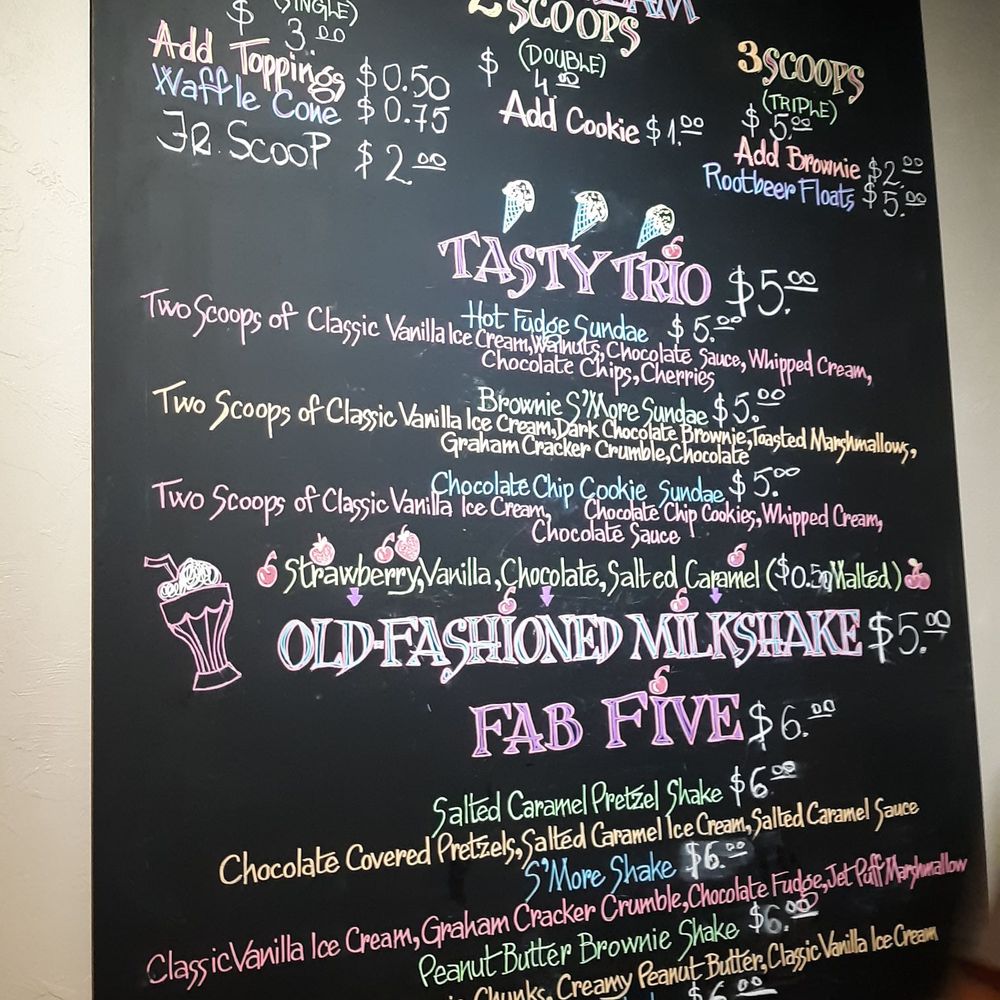 (SINGLE)
$ 3.00
Add Toppings $0.50
Waffle Cone $0.75
JR. SCOOP $2.00
2 SCOOPS
(DOUBLE)
$ 4.00
Add Cookie $1.00
3 SCOOPS
(TRIPLE)
$ 5.00
Add Brownie $2.00
Rootbeer Floats $5.00
TASTY TRIO $5.00
Hot Fudge Sundae $5.00
Two Scoops of Classic Vanilla Ice Cream, Walnuts, Chocolate Sauce, Whipped Cream,
Chocolate Chips, Cherries
Brownie S'More Sundae $5.00
Two Scoops of Classic Vanilla Ice Cream, Dark Chocolate Brownie, Toasted Marshmallows,
Graham Cracker Crumble, Chocolate
Chocolate Chip Cookie Sundae $5.00
Two Scoops of Classic Vanilla Ice Cream, Chocolate Chip Cookies, Whipped Cream,
Chocolate Sauce
Strawberry, Vanilla, Chocolate, Salted Caramel ($0.50 Malted)
OLD-FASHIONED MILKSHAKE $5.00
FAB FIVE $6.00
Salted Caramel Pretzel Shake $6.00
Chocolate Covered Pretzels, Salted Caramel Ice Cream, Salted Caramel Sauce
S'More Shake $6.00
Classic Vanilla Ice Cream, Graham Cracker Crumble, Chocolate Fudge, Jet Puff Marshmallow
Peanut Butter Brownie Shake $6.00
Chunks, Creamy Peanut Butter, Classic Vanilla Ice Cream
$6.00